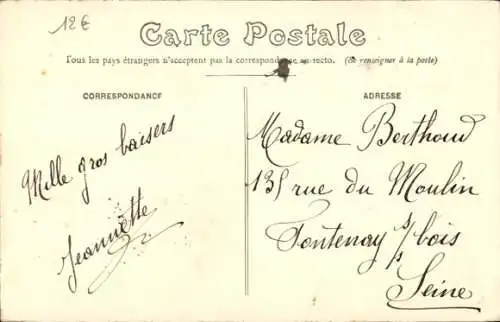 12€
Carte Postale
Tous les pays étrangers n'acceptent pas la correspondance au recto. (Se renseigner à la poste)
CORRESPONDANCE
Mille gros baisers
Jeannette
ADRESSE
Madame Berthoud
131 rue du Moulin
Fontenay s/s bois
Seine